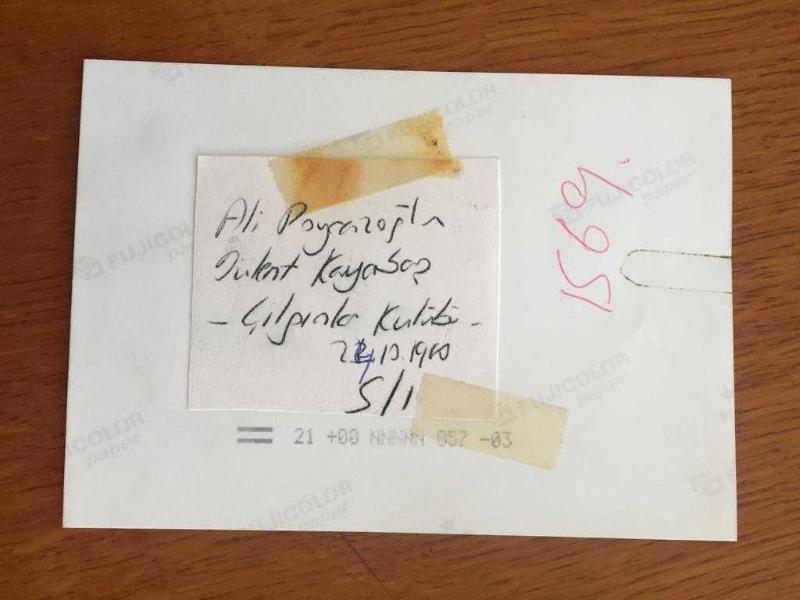 Ali Poyrazoğlu
Bülent Kayabaş
- Çılgınlar Kulübü -
S/1
21 +00 NNNNN 057 -03
1569.
FUJICOLOR
paper
FUJICOLOR
paper
FUJICOLOR
paper
FUJICOLOR
paper
FUJICOLOR
paper
FUJICOLOR
paper